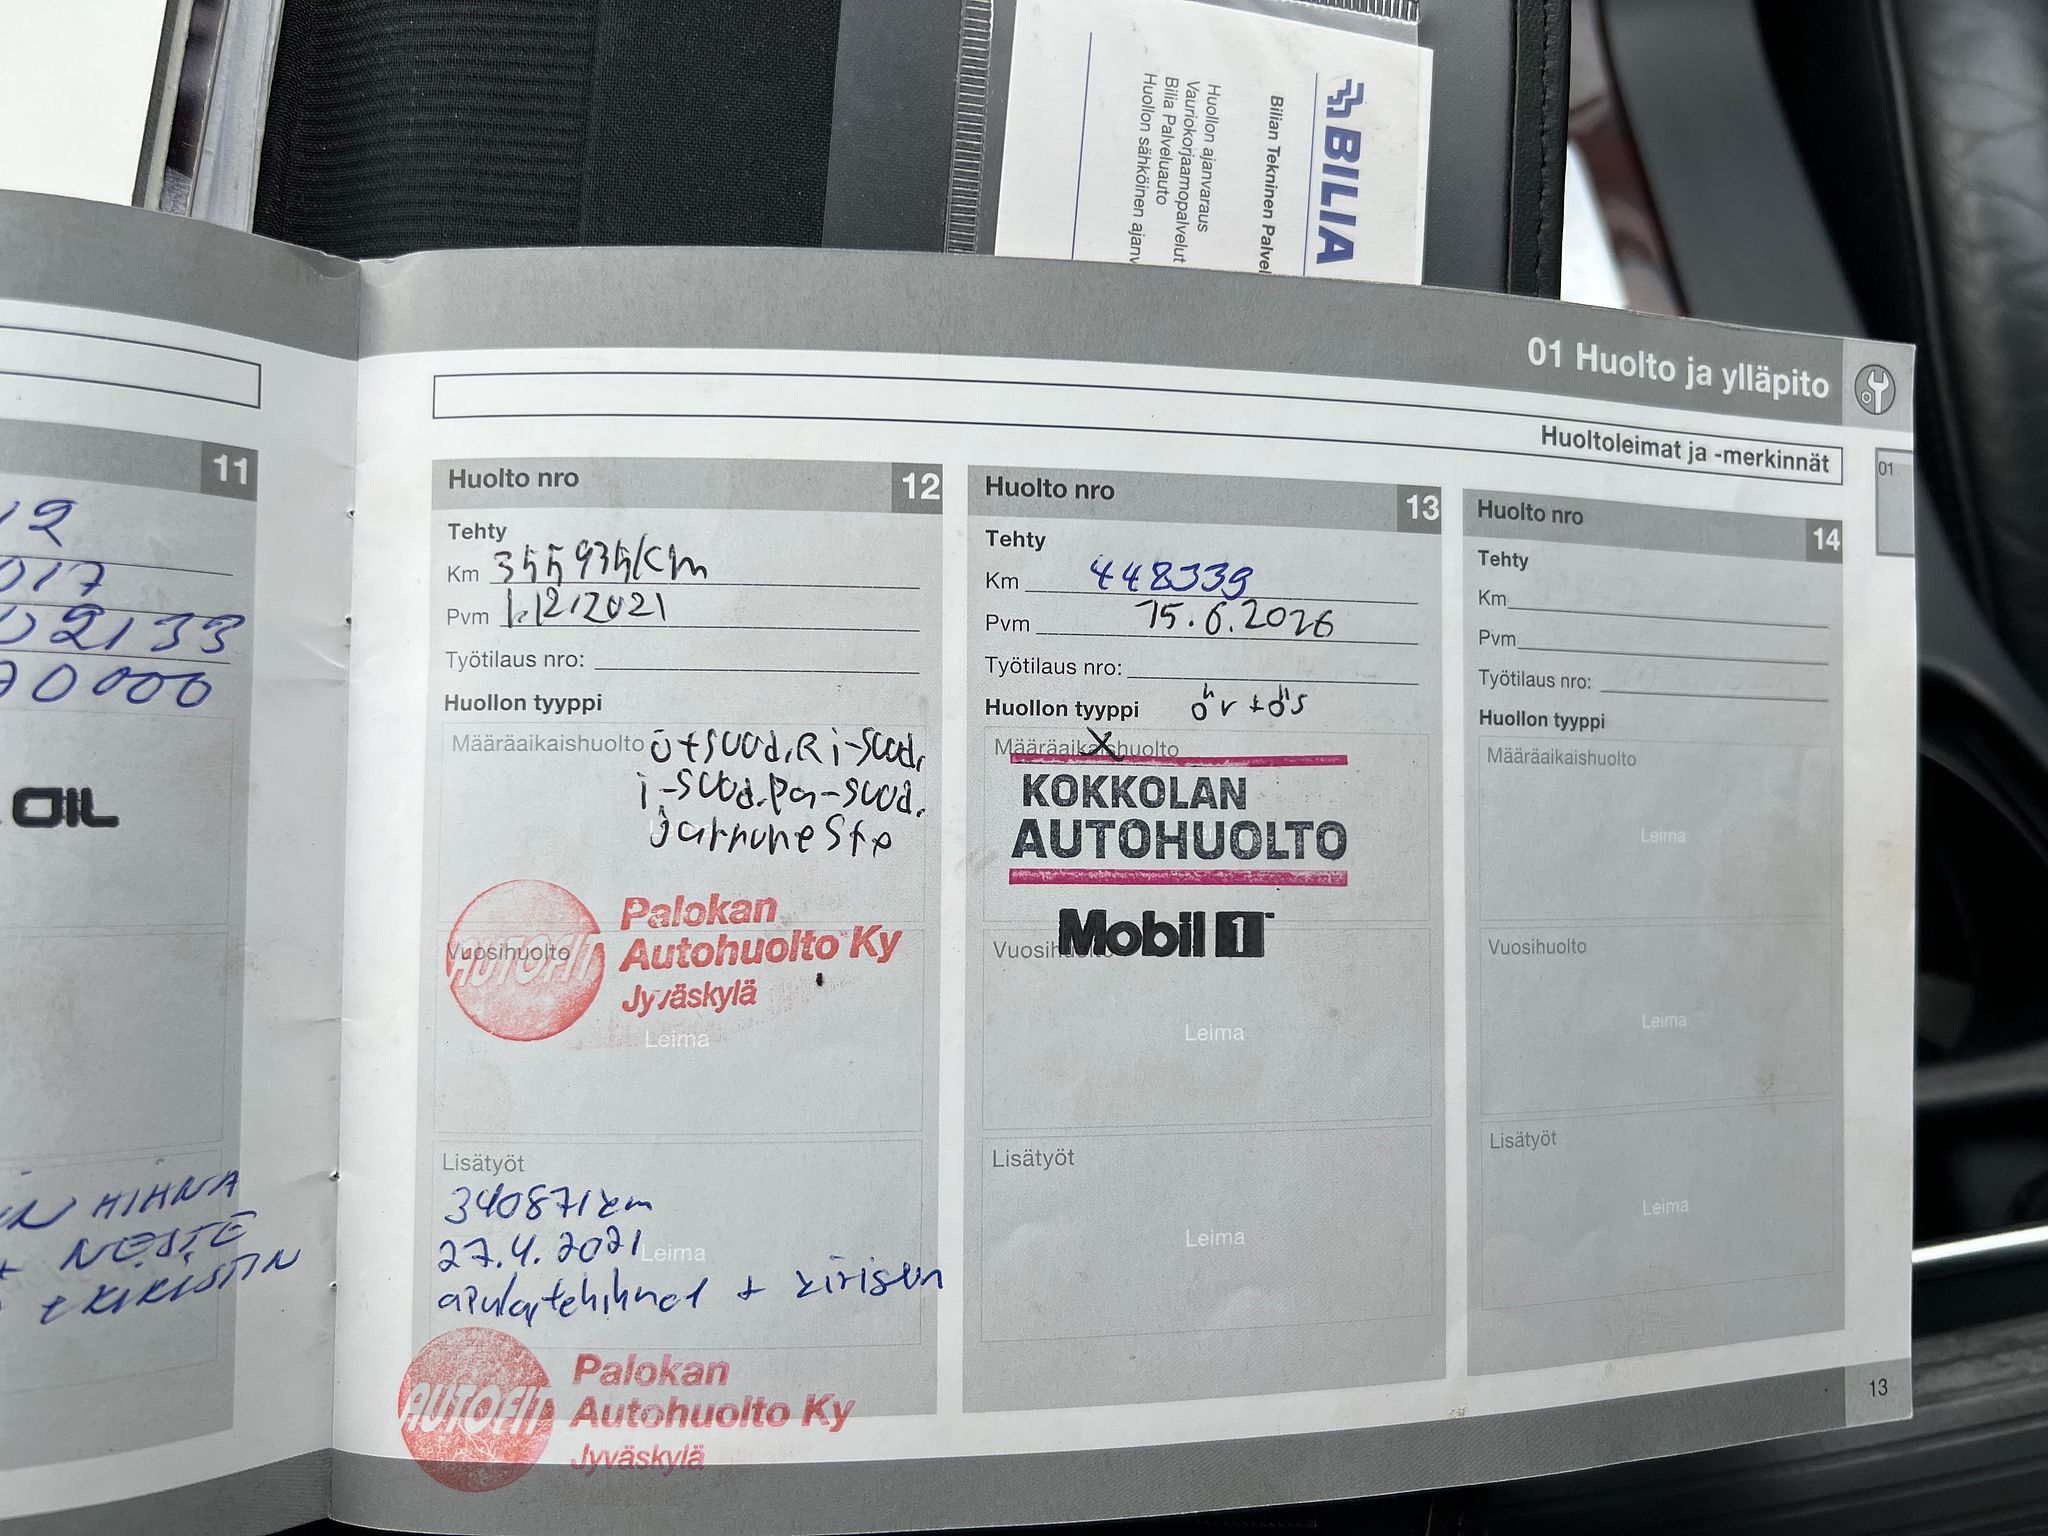 BILIA
Bilian Tekninen Palvel
Huollon ajanvaraus
Vauriokorjaamopalvelut
Bilia Palveluauto
Huollon sähköinen ajanv
01 Huolto ja ylläpito
Huoltoleimat ja -merkinnät
01
11
12
017
02133
70000
OIL
HIHNA
+ NESTE
+ KIRISTIN
Huolto nro 12
Tehty
Km 355935km
Pvm 1.12.2021
Työtilaus nro:
Huollon tyyppi
Määräaikaishuolto ö+suod. Ri-suod.
i-suod. pa-suod.
jarruneste
AUTOFIT
Palokan
Autohuolto Ky
Jyväskylä
Vuosihuolto
Leima
Lisätyöt
340871km
27.4.2021
Leima
apulaitehihnat + kiristin
AUTOFIT
Palokan
Autohuolto Ky
Jyväskylä
Huolto nro 13
Tehty
Km 448339
Pvm 15.6.2026
Työtilaus nro:
Huollon tyyppi öv+ös
Määräaikaishuolto X
KOKKOLAN
AUTOHUOLTO
Mobil 1
Vuosihuolto
Leima
Lisätyöt
Leima
Huolto nro 14
Tehty
Km
Pvm
Työtilaus nro:
Huollon tyyppi
Määräaikaishuolto
Leima
Vuosihuolto
Leima
Lisätyöt
Leima
13